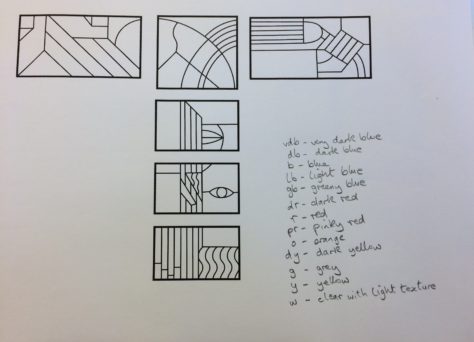 vdb - very dark blue
db - dark blue
b - blue
lb - light blue
gb - greeny blue
dr - dark red
r - red
pr - pinky red
o - orange
dy - dark yellow
y - yellow
g - grey
w - clear with light texture